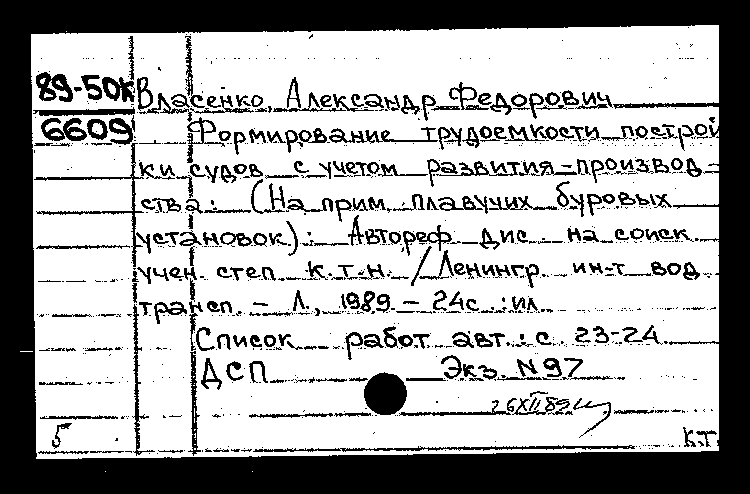 89-50К
6609
Власенко, Александр Федорович
Формирование трудоемкости построй
ки судов с учетом развития производ-
ства: (На прим. плавучих буровых
установок): Автореф. дис. на соиск.
учен. степ. к.т.н. / Ленингр. ин-т вод.
трансп. - Л., 1989 - 24с.: ил.
Список работ авт.: с. 23-24
ДСП Экз. N 97
26XII89
5 К.Т.